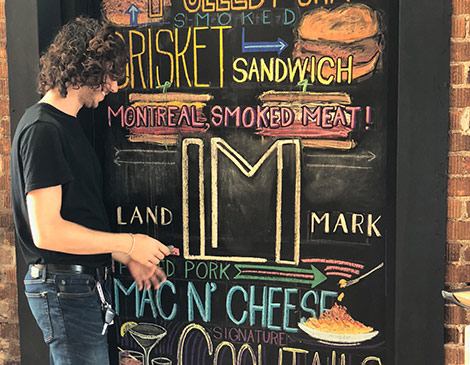 PULLED PORK
SMOKED
BRISKET SANDWICH
MONTREAL SMOKED MEAT!
LM
LAND MARK
PULLED PORK
MAC N' CHEESE
SIGNATURE
COCKTAILS